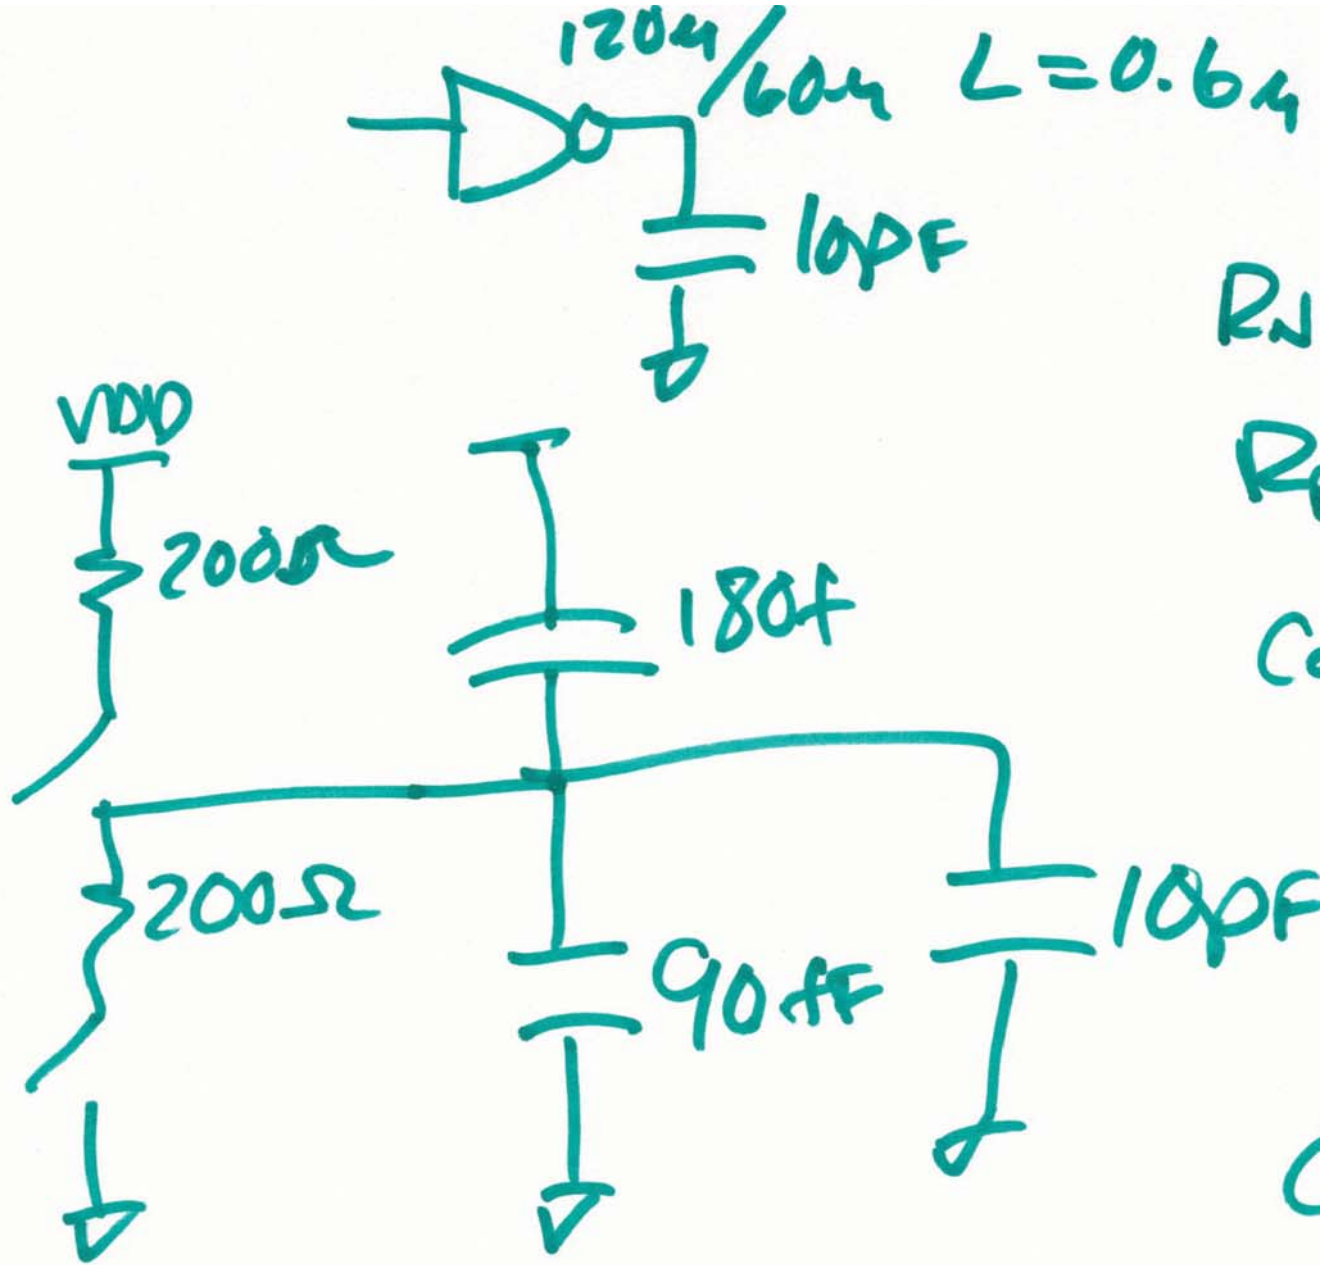 120μ/60μ L=0.6μ
10pF
RN
VDD
200Ω
180f
200Ω
90fF
10pF